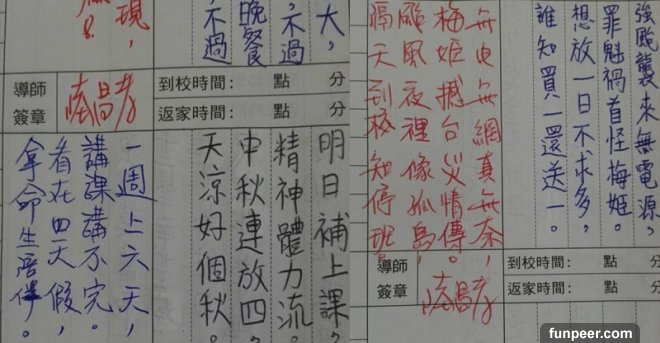 大，
，不過
晚餐
不過
現，
導師
簽章
到校時間： 點 分
返家時間： 點 分
明日補上課，
精神體力流。
中秋連放四。
天涼好個秋。
一週上六天，
講課講不完。
看在四天假，
拿命生陪伴。
強颱襲來無電源，
罪魁禍首怪梅姬。
想放一日不求多，
誰知買一還送一。
無电無網真無奈，
梅姬撼台災情傳。
颱風夜裡像孤島，
隔天到校知停班。
導師
簽章
到校時間： 點 分
返家時間： 點 分
funpeer.com